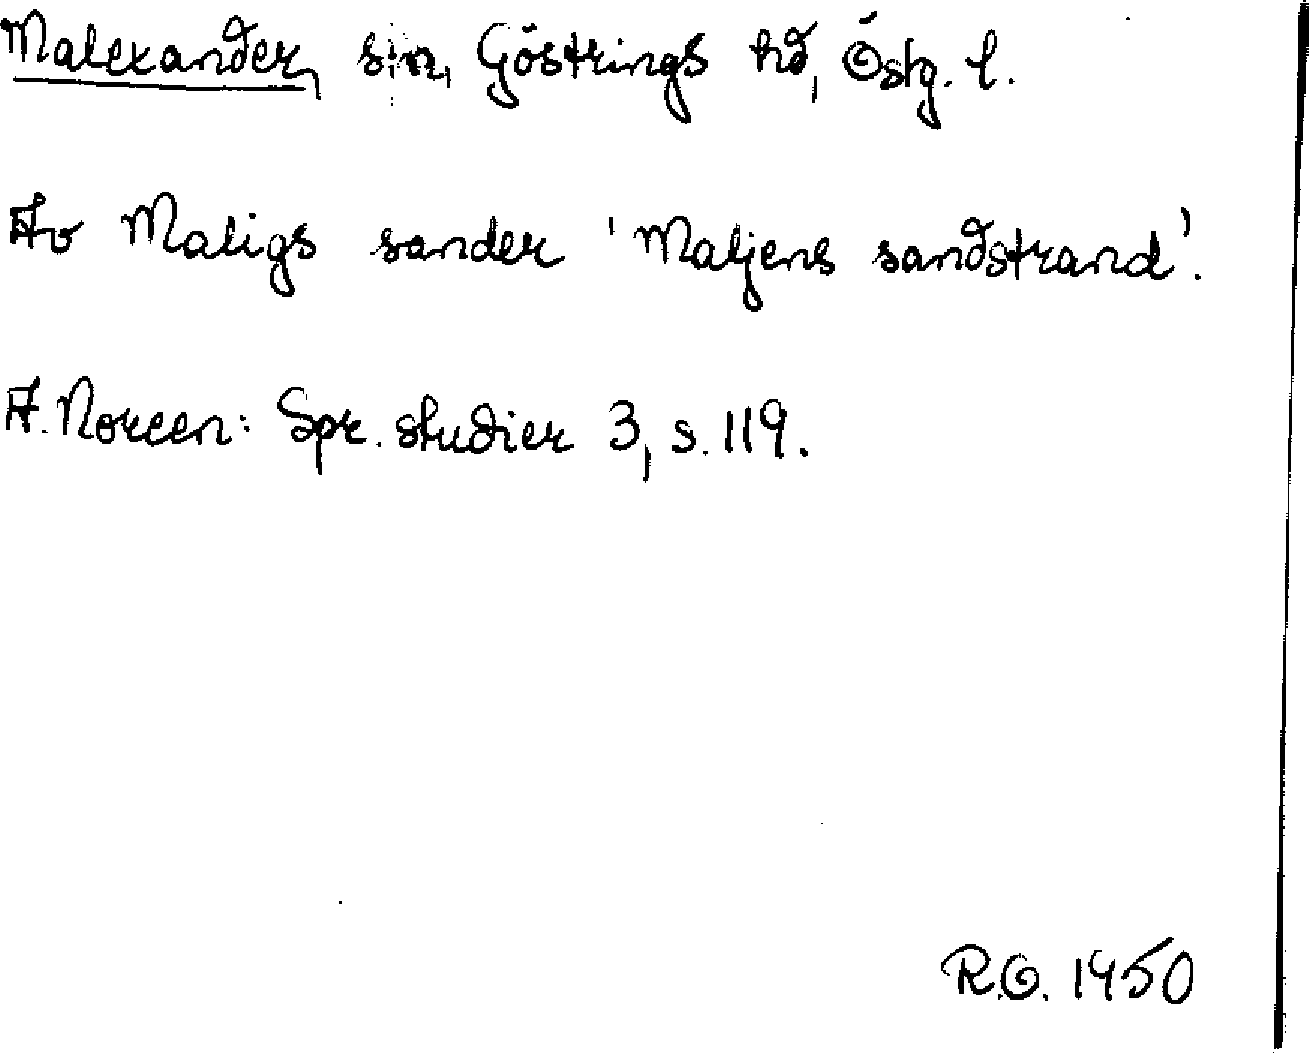 Malexander, sn, Göstrings hd, Östg. l.
Av Maligs sander 'Maljens sandstrand'.
A. Noreen: Spr. studier 3, s. 119.
R.O. 1950